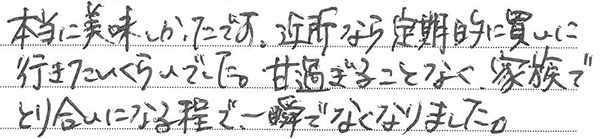 本当に美味しかったです。近所なら定期的に買いに
行きたいくらいでした。甘過ぎることなく、家族で
とり合いになる程で、一瞬でなくなりました。